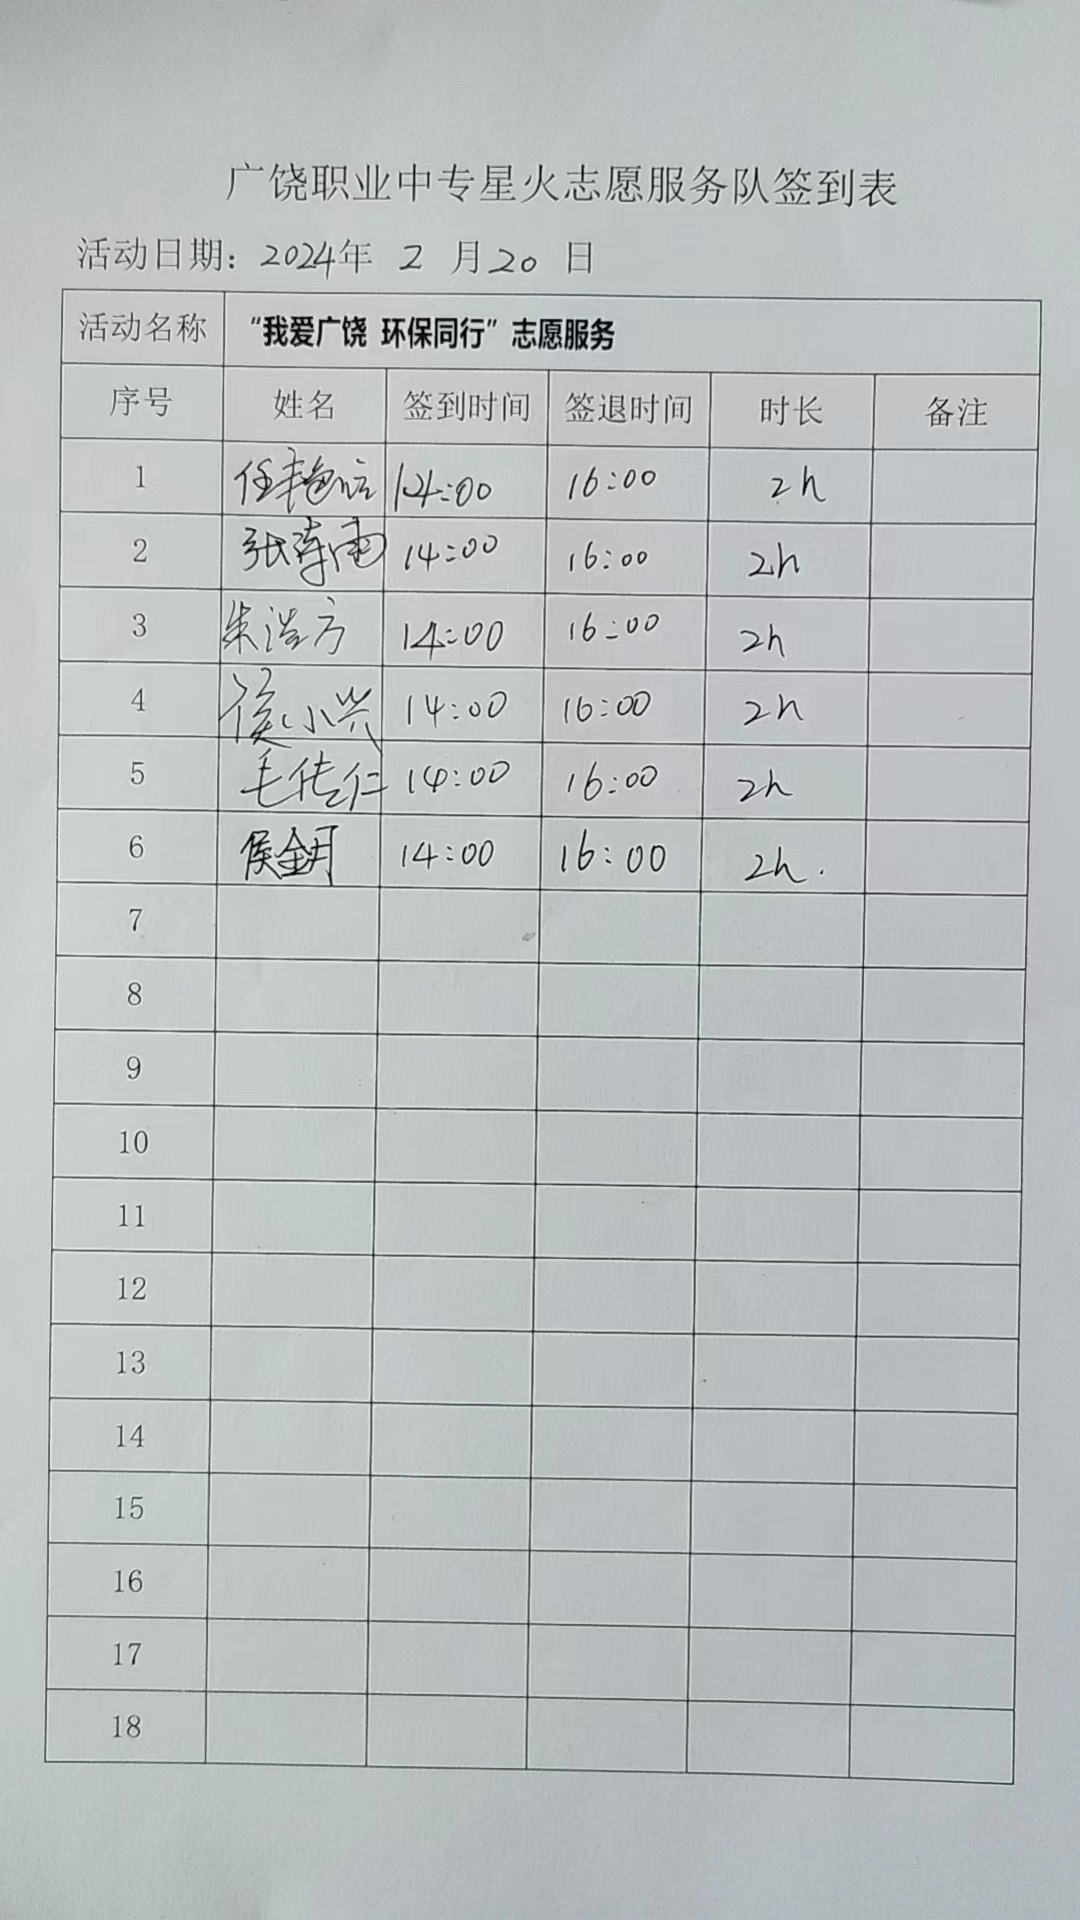 广饶职业中专星火志愿服务队签到表
活动日期：2024年 2 月20 日
活动名称 “我爱广饶 环保同行”志愿服务
序号 姓名 签到时间 签退时间 时长 备注
1 14:00 16:00 2h
2 14:00 16:00 2h
3 朱浩方 14:00 16:00 2h
4 侯小兴 14:00 16:00 2h
5 毛传仁 14:00 16:00 2h
6 侯金月 14:00 16:00 2h.
7
8
9
10
11
12
13
14
15
16
17
18